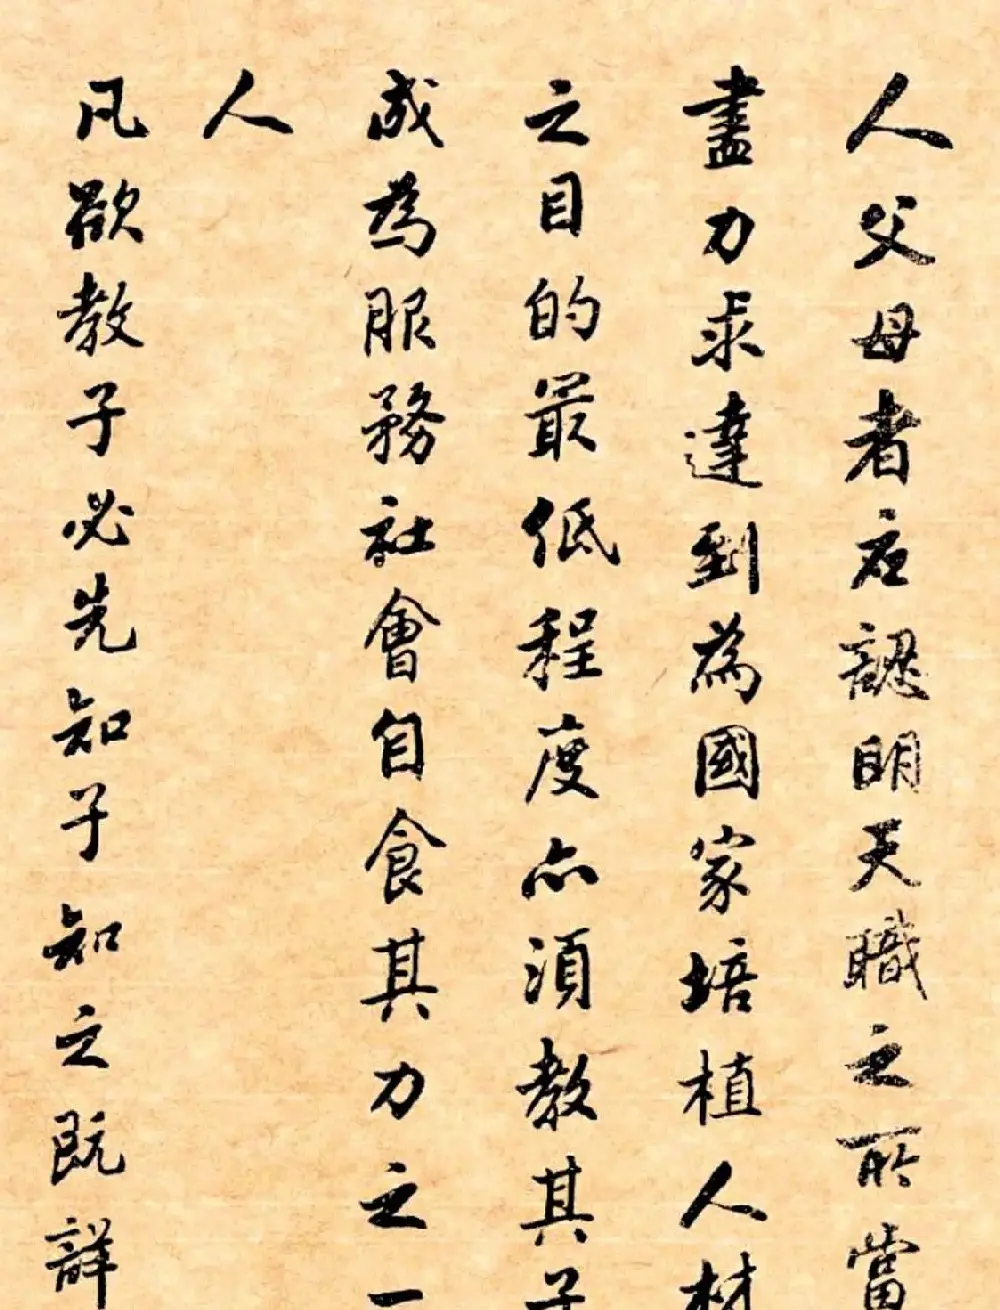 人父母者應認明天職之所當
盡力求達到為國家培植人材
之目的最低程度亦須教其子
成為服務社會自食其力之一
人
凡欲教子必先知子知之既詳